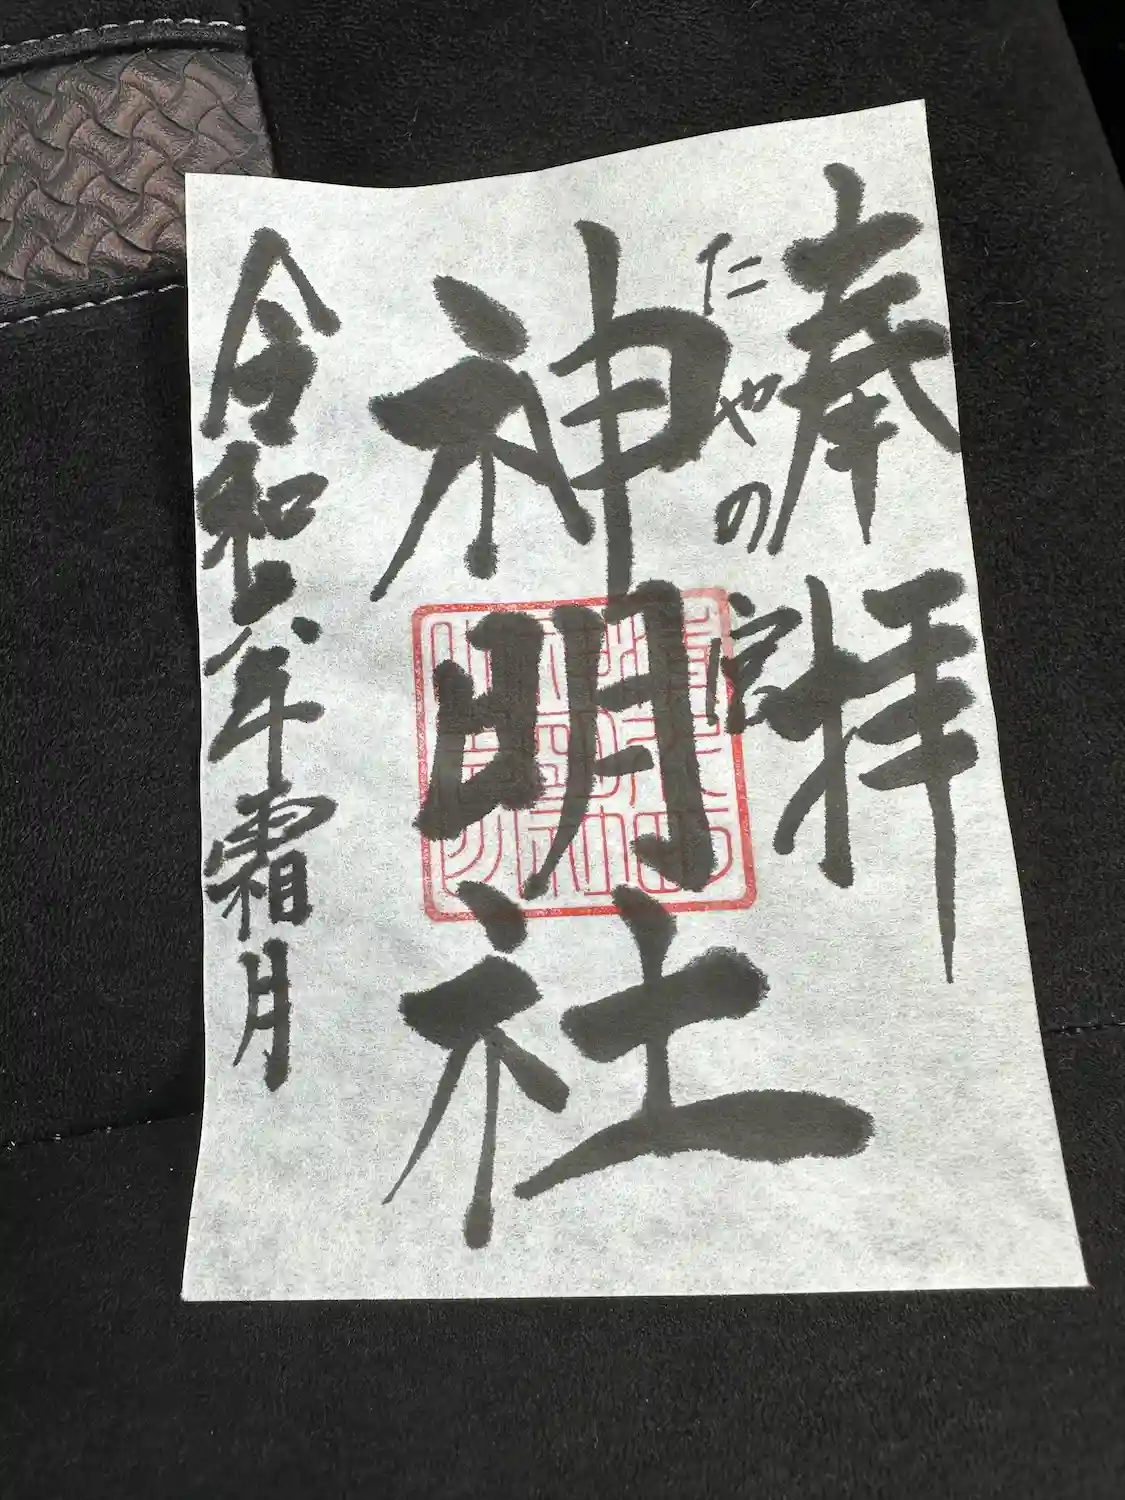 奉拝
たやの
神明社
令和六年霜月